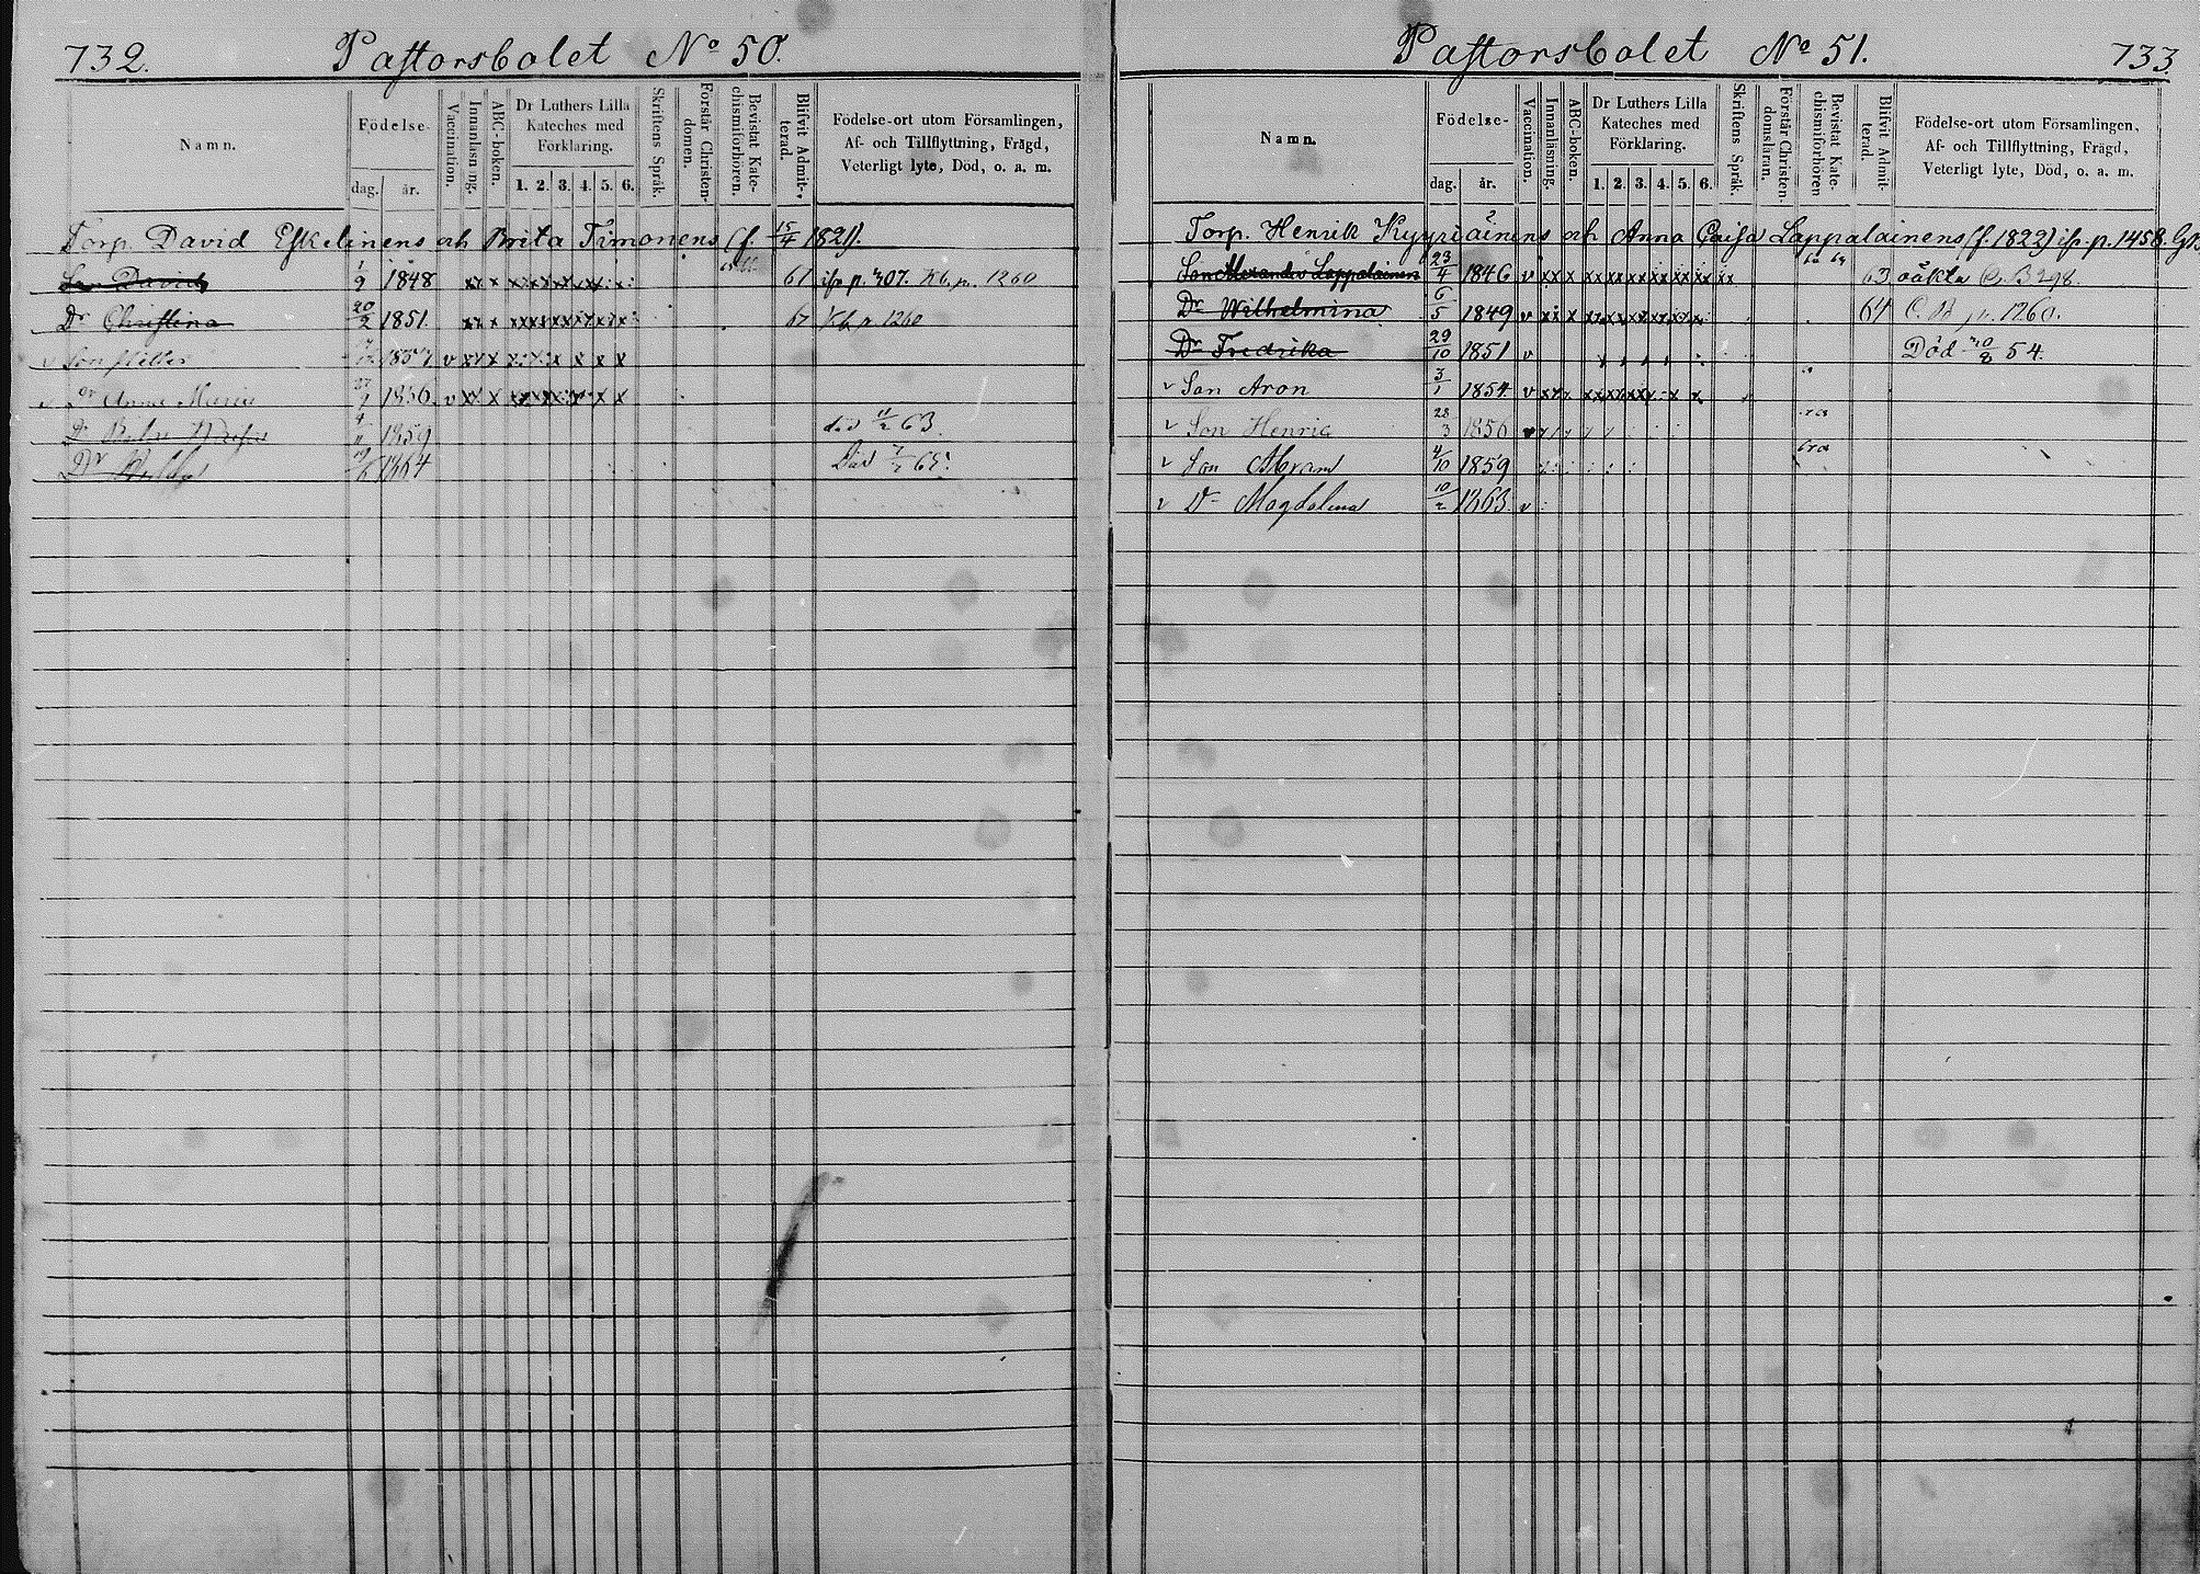 732. Pastorsbolet No 50.
Namn.
Födelse-
dag. år.
Vaccination.
Innanläsning.
ABC-boken.
Dr Luthers Lilla Kateches med Förklaring.
1. 2. 3. 4. 5. 6.
Skriftens Språk.
Förstår Christendomen.
Bevistat Katechismiförhören.
Blifvit Admitterad.
Födelse-ort utom Församlingen,
Af- och Tillflyttning, Frägd,
Veterligt lyte, Död, o. a. m.
Torp. David Eskelinens och Brita Timonens (f. 15/4 1821).
Son David 1/9 1848 x x 61 p. 307. Kb. p. 1260
Dr Christina 20/2 1851. x x 67 Kb. p. 1260
v Son v x x x x x x
v Dr Anna Maria 27 1856. v x x x x x x
Dr 4/11 1859 död 11/2 63.
Dr 19/6 1864 Död 7/2 65.
Pastorsbolet No 51. 733.
Namn.
Födelse-
dag. år.
Vaccination.
Innanläsning.
ABC-boken.
Dr Luthers Lilla Kateches med Förklaring.
1. 2. 3. 4. 5. 6.
Skriftens Språk.
Förstår Christendomsläran.
Bevistat Katechismiförhören
Blifvit Admitterad.
Födelse-ort utom Församlingen,
Af- och Tillflyttning, Frägd,
Veterligt lyte, Död, o. a. m.
Torp. Henrik Kyyriäinens och Anna Caisa Lappalainens (f. 1822) p. 1458.
Son Alexander Lappalainen 23/4 1846 v xx x xx xx xx xx xx xx xx 63 oäkta C. B 298.
Dr Wilhelmina 6/5 1849 v xx x xx xx xx xx xx x 64 C. B p. 1260.
Dr Fredrika 29/10 1851 v Död 54.
v Son Aron 3/1 1854 v xx x xx xx xx x x x
v Son Henric 28/3 1856 v
v Son Abram 4/10 1859
v Dr Magdalena 10/2 1863. v